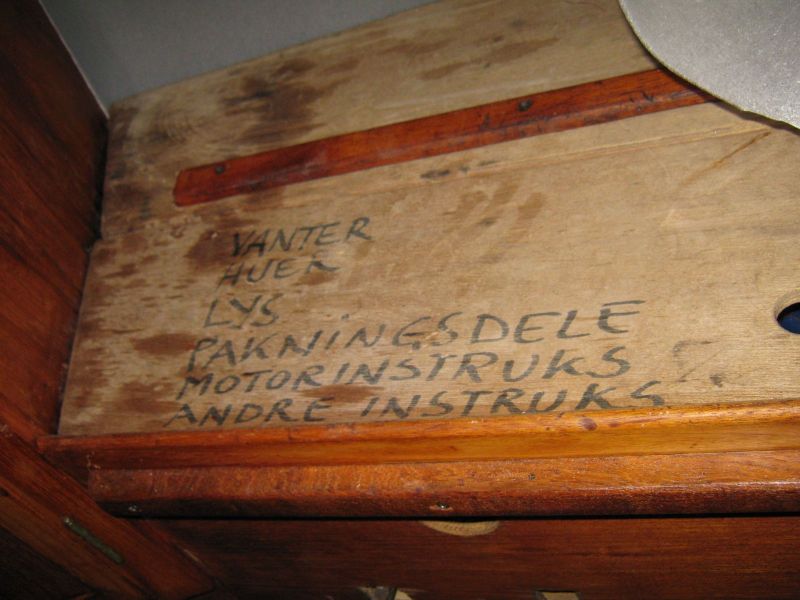 VANTER
HUER
LYS
PAKNINGSDELE
MOTORINSTRUKS
ANDRE INSTRUKS